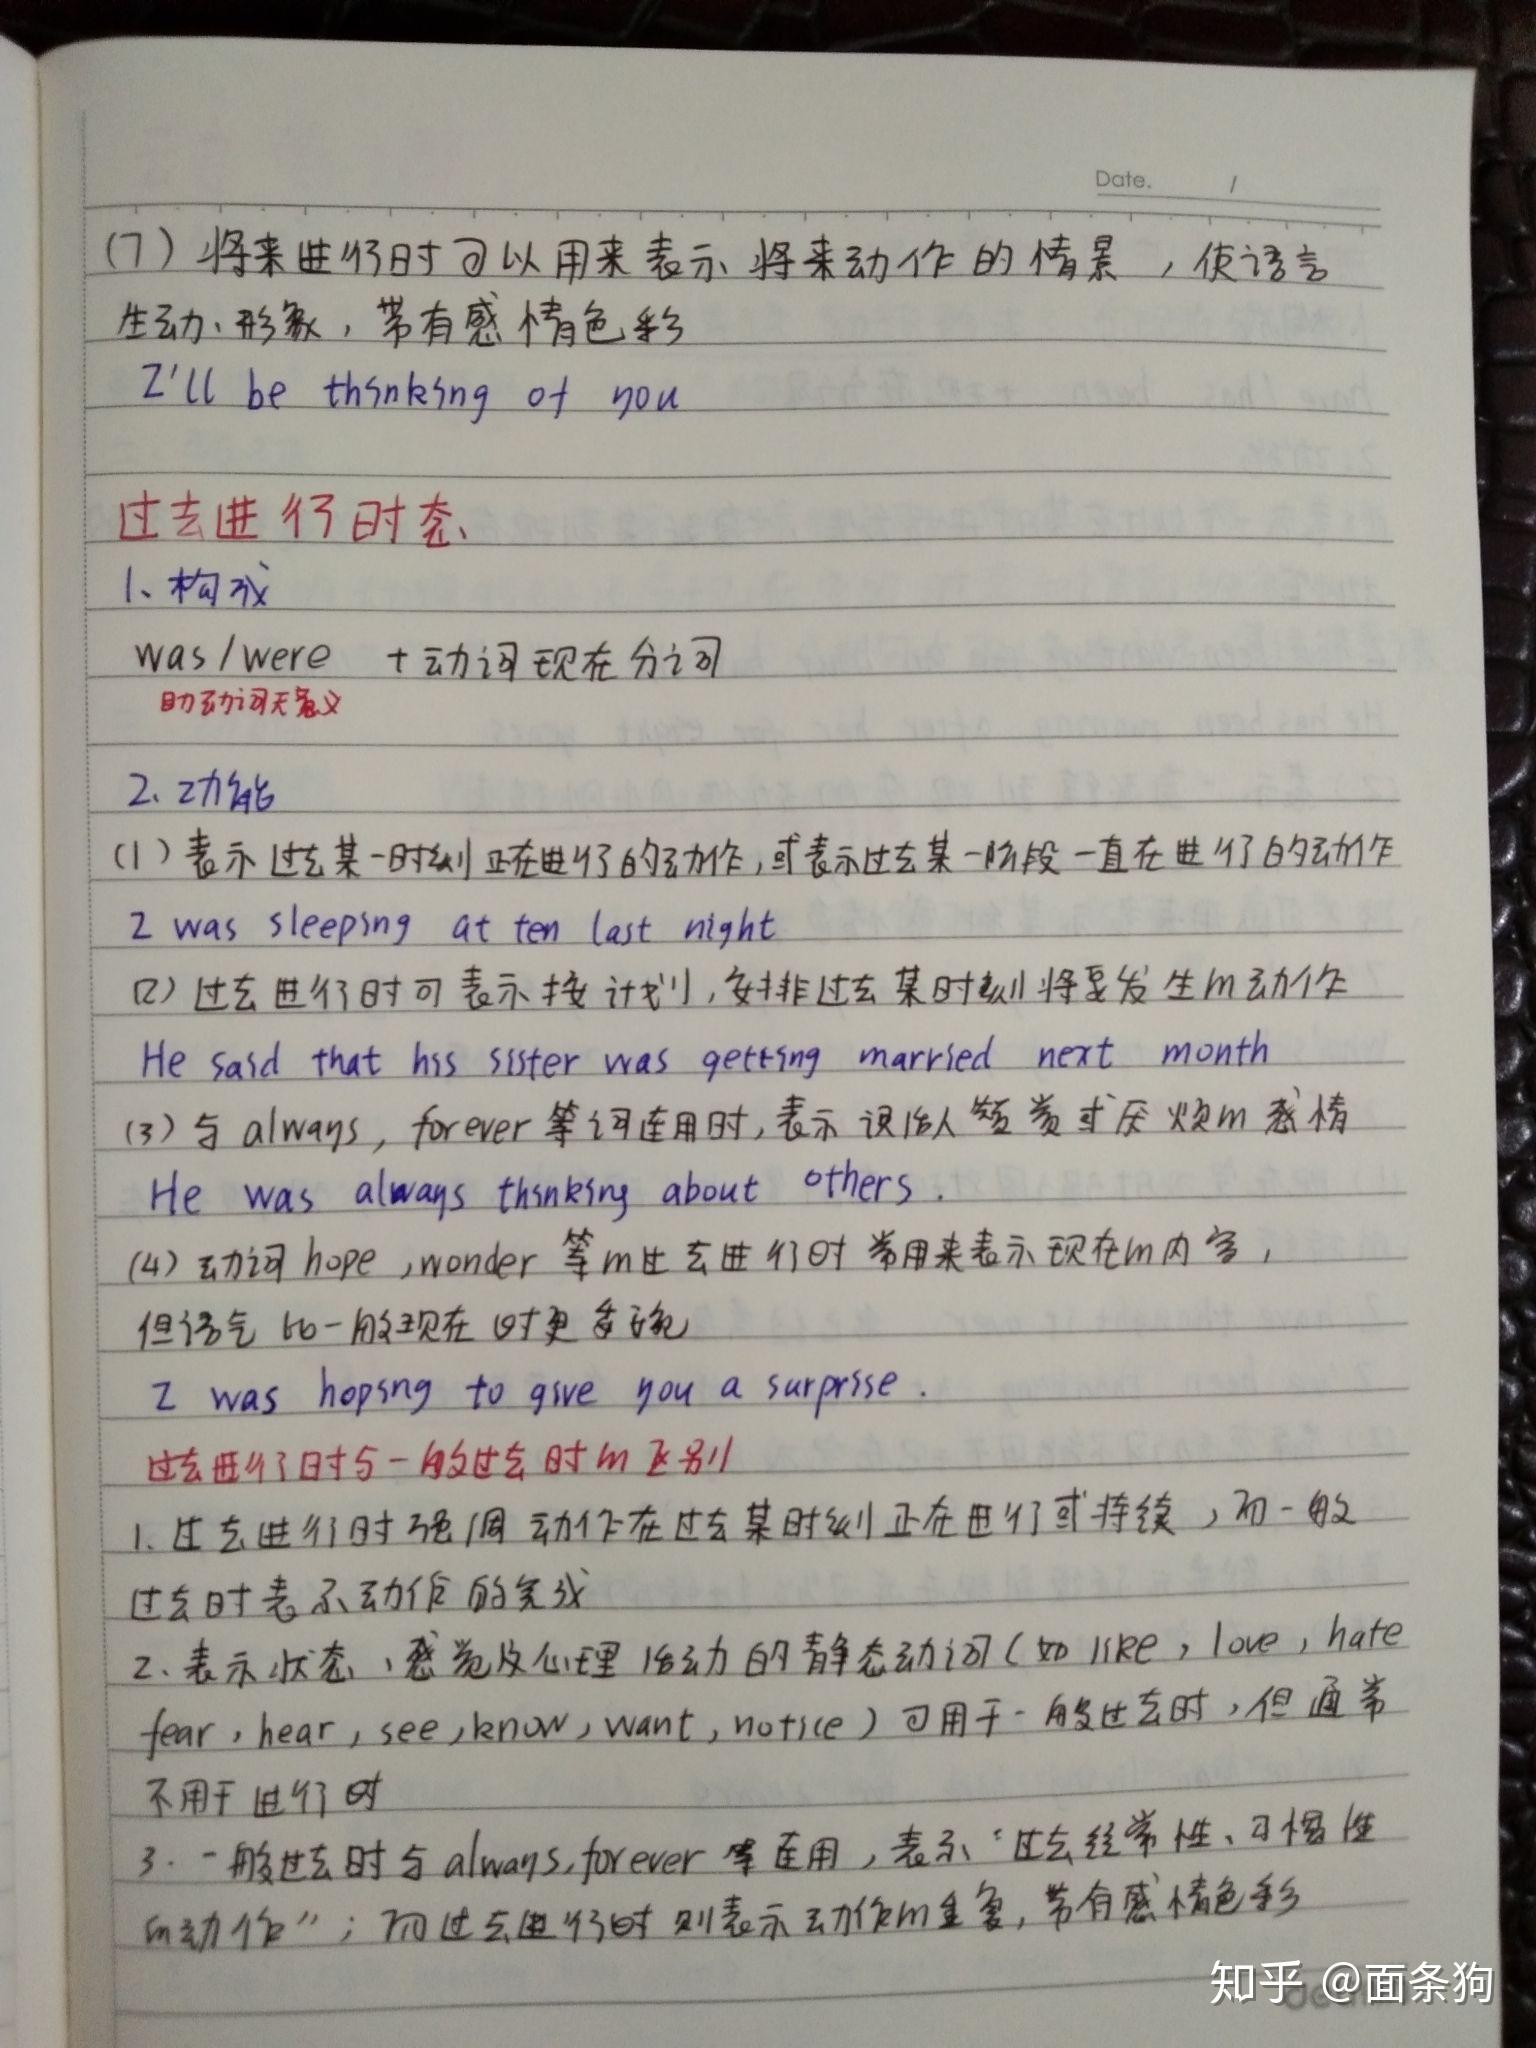 Date. /
(7) 将来进行时可以用来表示将来动作的情景，使语言
生动、形象，带有感情色彩
I'll be thinking of you
过去进行时态
1、构成
was/were + 动词现在分词
助动词无意义
2、功能
(1) 表示过去某一时刻正在进行的动作，或表示过去某一阶段一直在进行的动作
I was sleeping at ten last night
(2) 过去进行时可表示按计划，安排过去某时刻将要发生的动作
He said that his sister was getting married next month
(3) 与 always, forever 等词连用时，表示说话人赞赏或厌烦的感情
He was always thinking about others.
(4) 动词 hope, wonder 等的过去进行时常用来表示现在的内容，
但语气比一般现在时更委婉
I was hoping to give you a surprise.
过去进行时与一般过去时的区别
1. 过去进行时强调动作在过去某时刻正在进行或持续，而一般
过去时表示动作的完成
2、表示状态、感觉及心理活动的静态动词(如 like, love, hate
fear, hear, see, know, want, notice) 可用于一般过去时，但通常
不用于进行时
3. 一般过去时与 always, forever 等连用，表示“过去经常性、习惯性
的动作”；而过去进行时则表示动作的重复，带有感情色彩
知乎 @面条狗